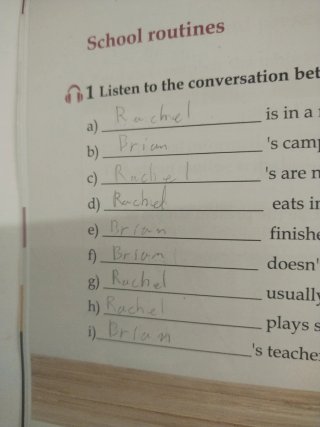 School routines
1 Listen to the conversation bet
a) Rachel is in a
b) Brian 's camp
c) Rachel 's are n
d) Rachel eats in
e) Brian finishe
f) Brian doesn'
g) Rachel usually
h) Rachel plays s
i) Brian 's teache